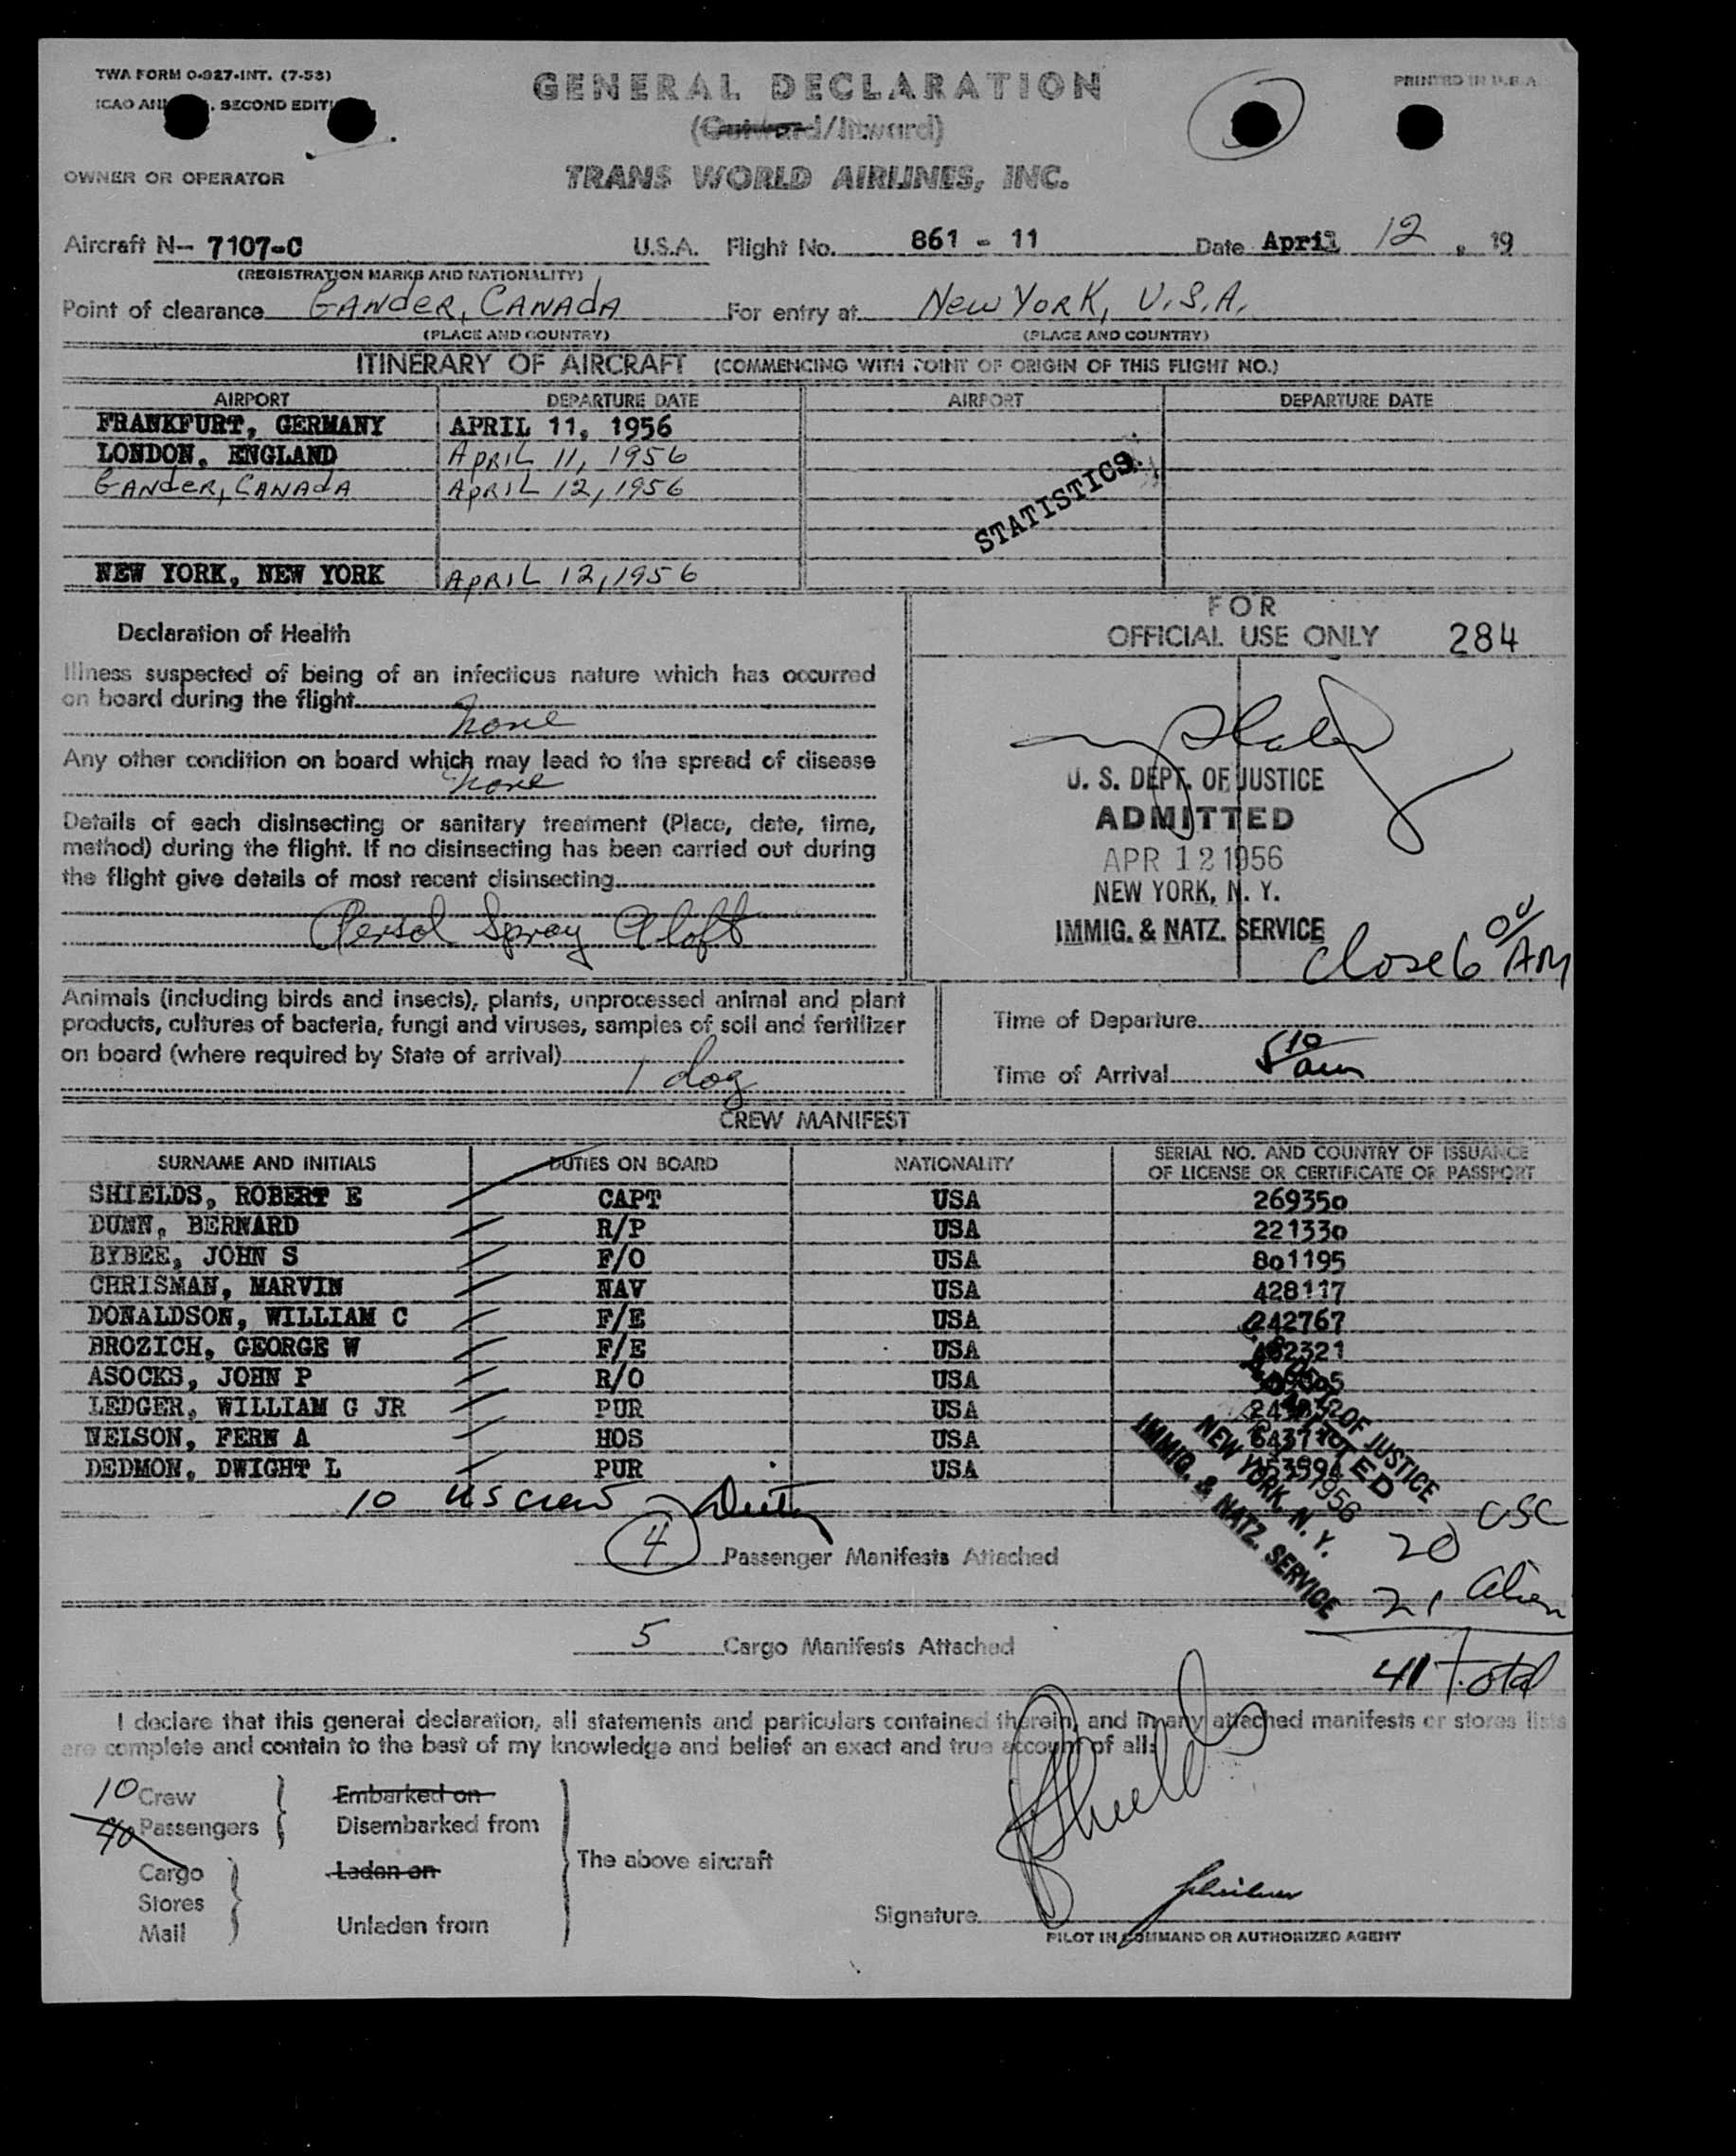 TWA FORM O-927-INT. (7-53)
ICAO SECOND
PRINTED IN U.S.A.
GENERAL DECLARATION
(Outward/Inward)
OWNER OR OPERATOR
TRANS WORLD AIRLINES, INC.
Aircraft N- 7107-C U.S.A. Flight No. 861 - 11 Date April 12, 19
(REGISTRATION MARKS AND NATIONALITY)
Point of clearance GANdeR, CANAdA For entry at New YoRK, U.S.A.
(PLACE AND COUNTRY) (PLACE AND COUNTRY)
ITINERARY OF AIRCRAFT (COMMENCING WITH POINT OF ORIGIN OF THIS FLIGHT NO.)
AIRPORT DEPARTURE DATE AIRPORT DEPARTURE DATE
FRANKFURT, GERMANY APRIL 11, 1956
LONDON, ENGLAND APRIL 11, 1956
GANdeR, CANAdA APRIL 12, 1956
STATISTICS
NEW YORK, NEW YORK APRIL 12, 1956
FOR
OFFICIAL USE ONLY 284
Declaration of Health
Illness suspected of being of an infectious nature which has occurred
on board during the flight
None
Any other condition on board which may lead to the spread of disease
None
Details of each disinsecting or sanitary treatment (Place, date, time,
method) during the flight. If no disinsecting has been carried out during
the flight give details of most recent disinsecting
Spray Aloft
U. S. DEPT. OF JUSTICE
ADMITTED
APR 12 1956
NEW YORK, N. Y.
IMMIG. & NATZ. SERVICE
Close 6 00 AM
Animals (including birds and insects), plants, unprocessed animal and plant
products, cultures of bacteria, fungi and viruses, samples of soil and fertilizer
on board (where required by State of arrival)
1 dog
Time of Departure
Time of Arrival 5 10 am
CREW MANIFEST
SURNAME AND INITIALS DUTIES ON BOARD NATIONALITY SERIAL NO. AND COUNTRY OF ISSUANCE
OF LICENSE OR CERTIFICATE OR PASSPORT
SHIELDS, ROBERT E CAPT USA 269350
DUNN, BERNARD R/P USA 221330
BYBEE, JOHN S F/O USA 801195
CHRISMAN, MARVIN NAV USA 428117
DONALDSON, WILLIAM C F/E USA 242767
BROZICH, GEORGE W F/E USA
ASOCKS, JOHN P R/O USA
LEDGER, WILLIAM G JR PUR USA
NELSON, FERN A HOS USA
DEDMON, DWIGHT L PUR USA
OF JUSTICE
ADMITTED
1956
NEW YORK, N. Y.
IMMIG. & NATZ. SERVICE
10 US Crew
4 Passenger Manifests Attached
20 USC
21 Alien
5 Cargo Manifests Attached
41 Total
I declare that this general declaration, all statements and particulars contained therein, and in any attached manifests or stores lists
are complete and contain to the best of my knowledge and belief an exact and true account of all:
10 Crew Embarked on
40 Passengers Disembarked from
The above aircraft
Cargo Laden on
Stores
Mail Unladen from
Signature Shields
PILOT IN COMMAND OR AUTHORIZED AGENT